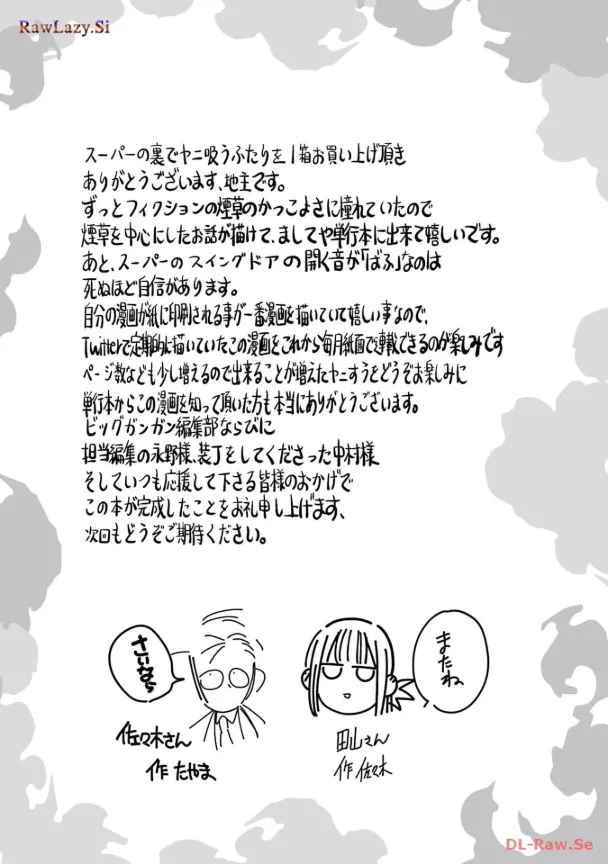 RawLazy.Si
スーパーの裏でヤニ吸うふたりを1箱お買い上げ頂き
ありがとうございます、地主です。
ずっとフィクションの煙草のかっこよさに憧れていたので
煙草を中心にしたお話が描けて、ましてや単行本に出来て嬉しいです。
あと、スーパーのスイングドアの開く音が「ばふ」なのは
死ぬほど自信があります。
自分の漫画が紙に印刷される事が一番漫画を描いていて嬉しい事なので、
Twitterで定期的に描いていたこの漫画をこれから毎月紙面で連載できるのが楽しみです
ページ数なども少し増えるので出来ることが増えたヤニすうをどうぞお楽しみに
単行本からこの漫画を知って頂いた方も本当にありがとうございます。
ビッグガンガン編集部ならびに
担当編集の永野様、装丁をしてくださった中村様
そしていつも応援して下さる皆様のおかげで
この本が完成したことをお礼申し上げます、
次回もどうぞご期待ください。
さいなら
またね
佐々木さん
作 たやま
田山さん
作 佐々木
DL-Raw.Se